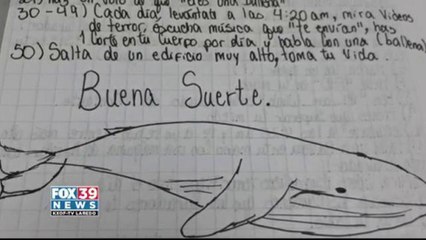 30-49) Cada día, levántate a las 4:20am, mira videos
de terror, escucha música que "te envían", has
1 corte en tu cuerpo por día y habla con una (ballena)
50) Salta de un edificio muy alto, toma tu vida.
Buena Suerte.
FOX 39
NEWS
KXOF-TV LAREDO